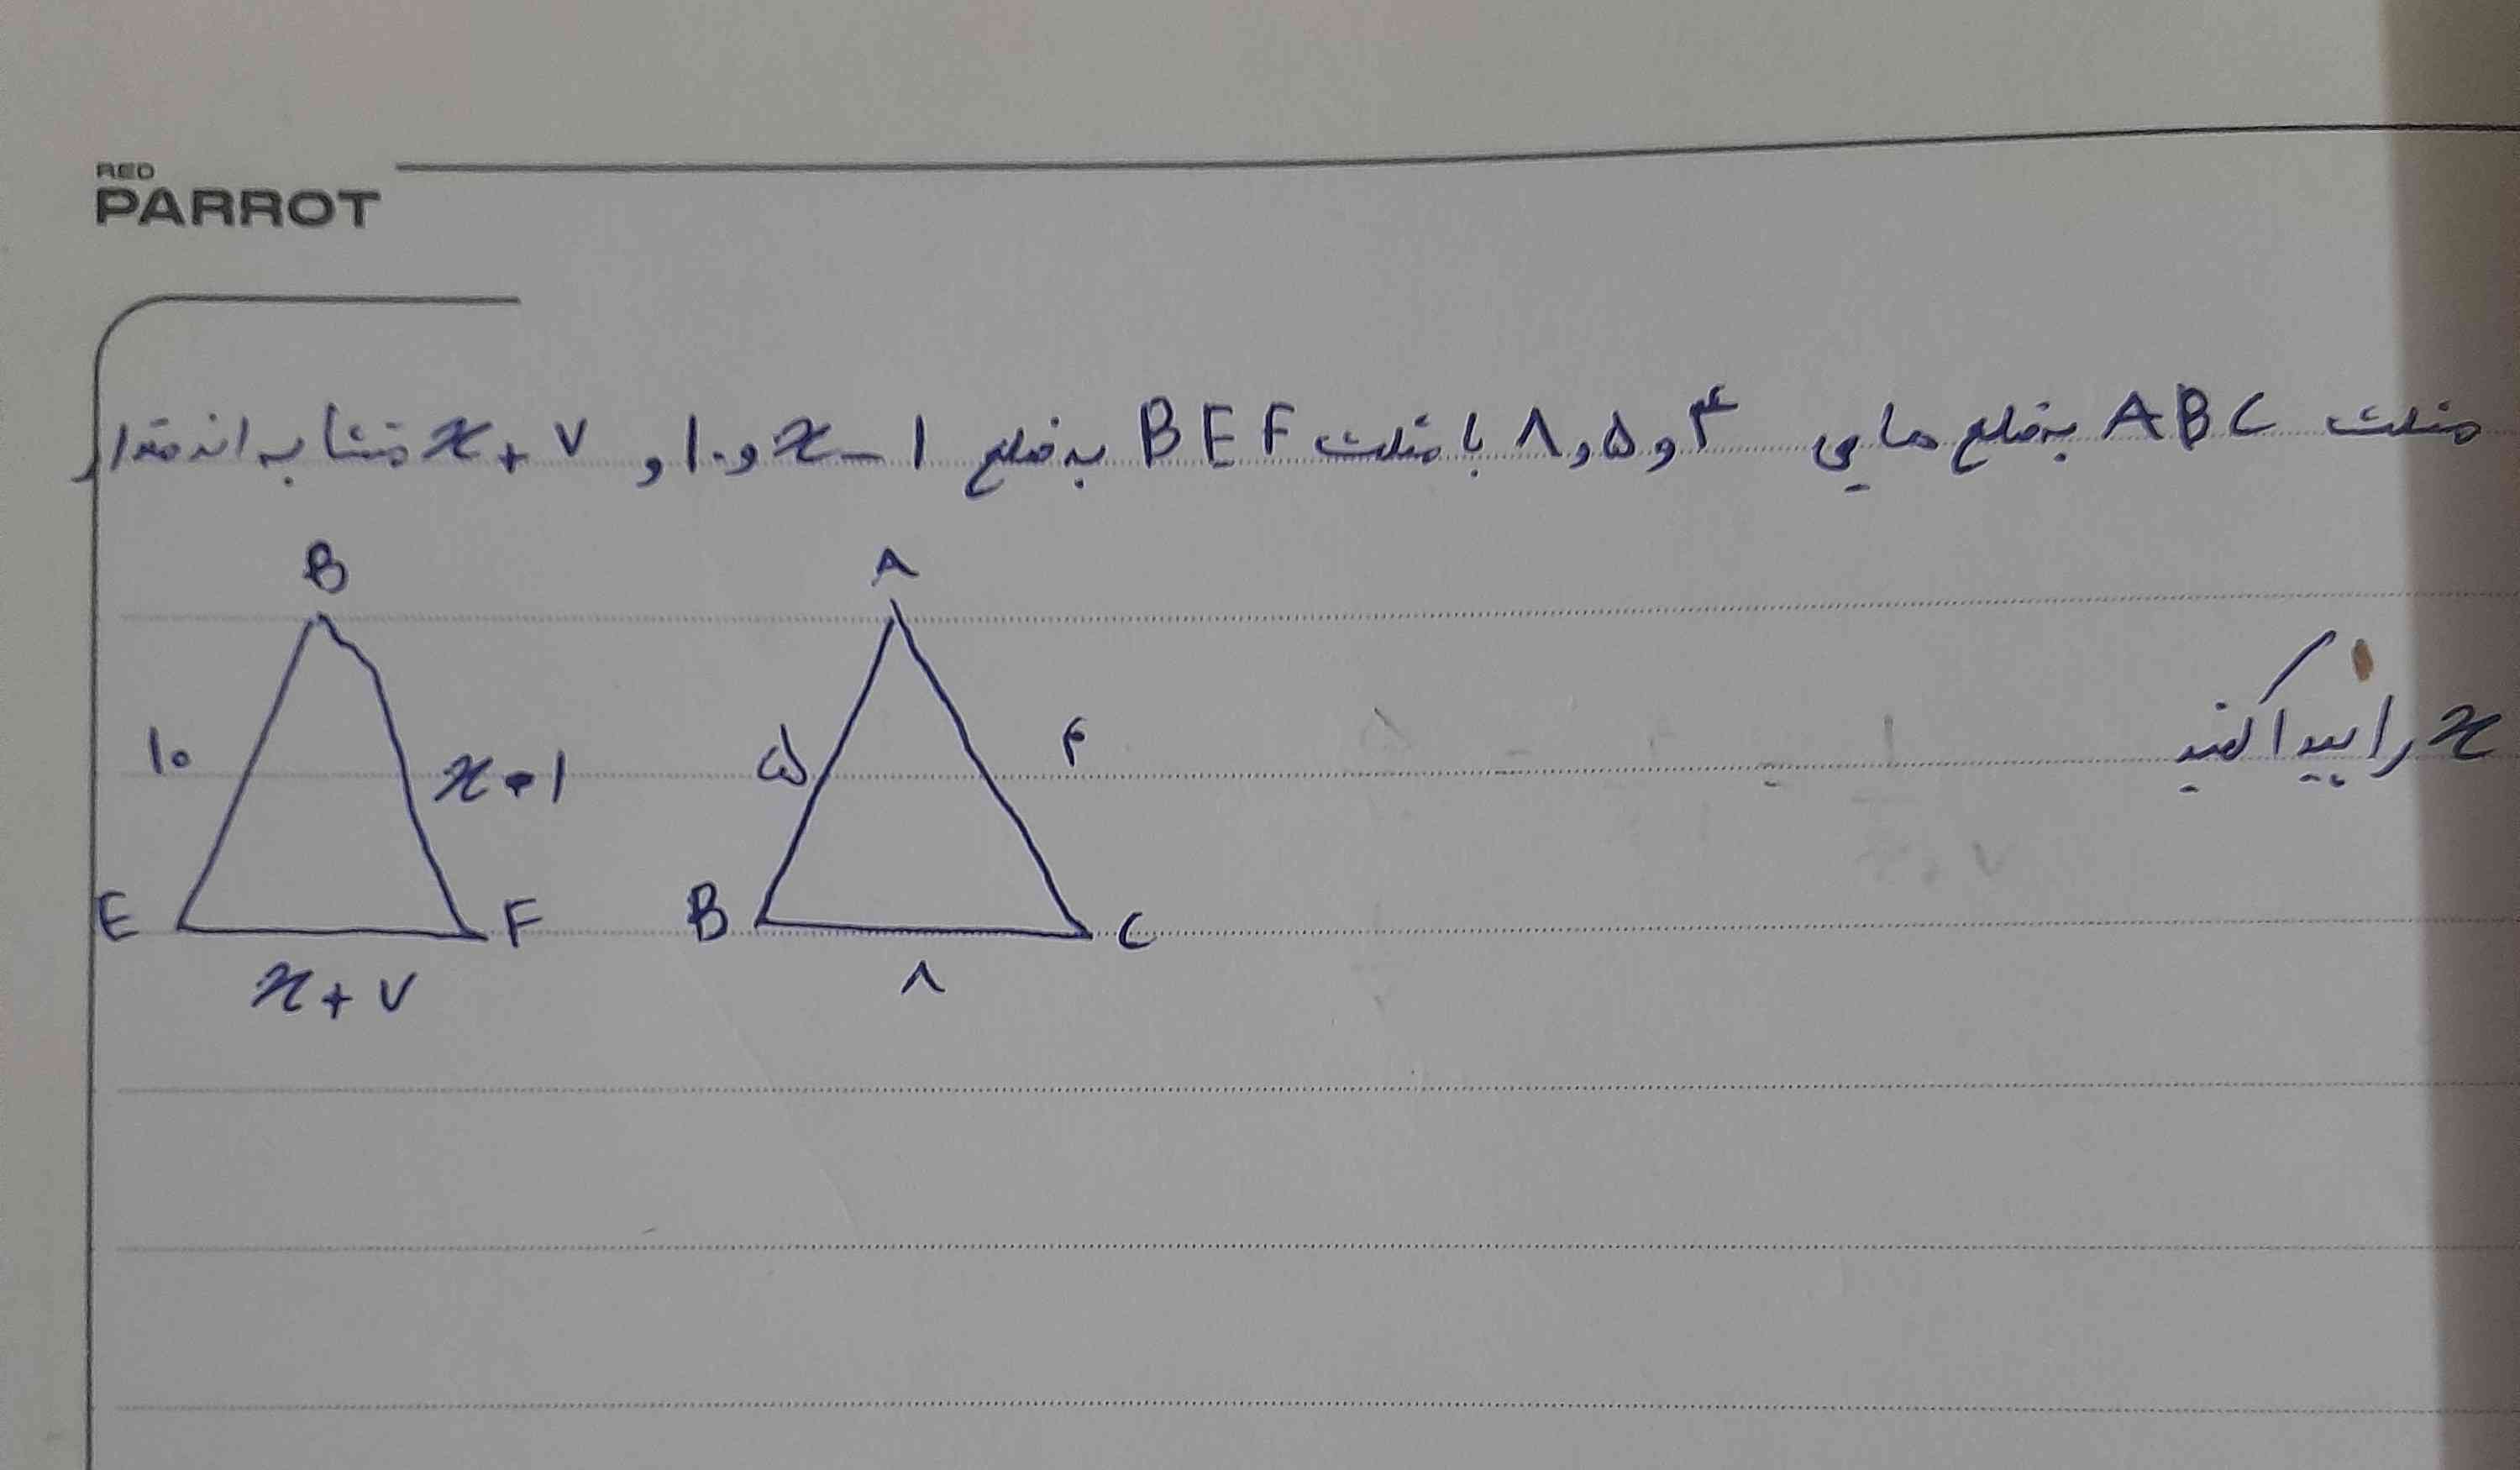 RED
PARROT
مثلث ABC به ضلع هایی ۴ و ۵ و ۸ با مثلث BEF به ضلع x-۱ و ۱۰ و x+۷ متشابه اند مقدار
x را پیدا کنید
B
A
۱۰
x-۱
۵
۴
E
F
B
C
x+۷
۸